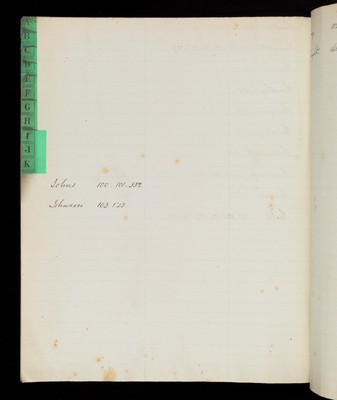 A
B
C
D
E
F
G
H
I
J
K
Johns 100. 101. 332
Johnson 103. 123